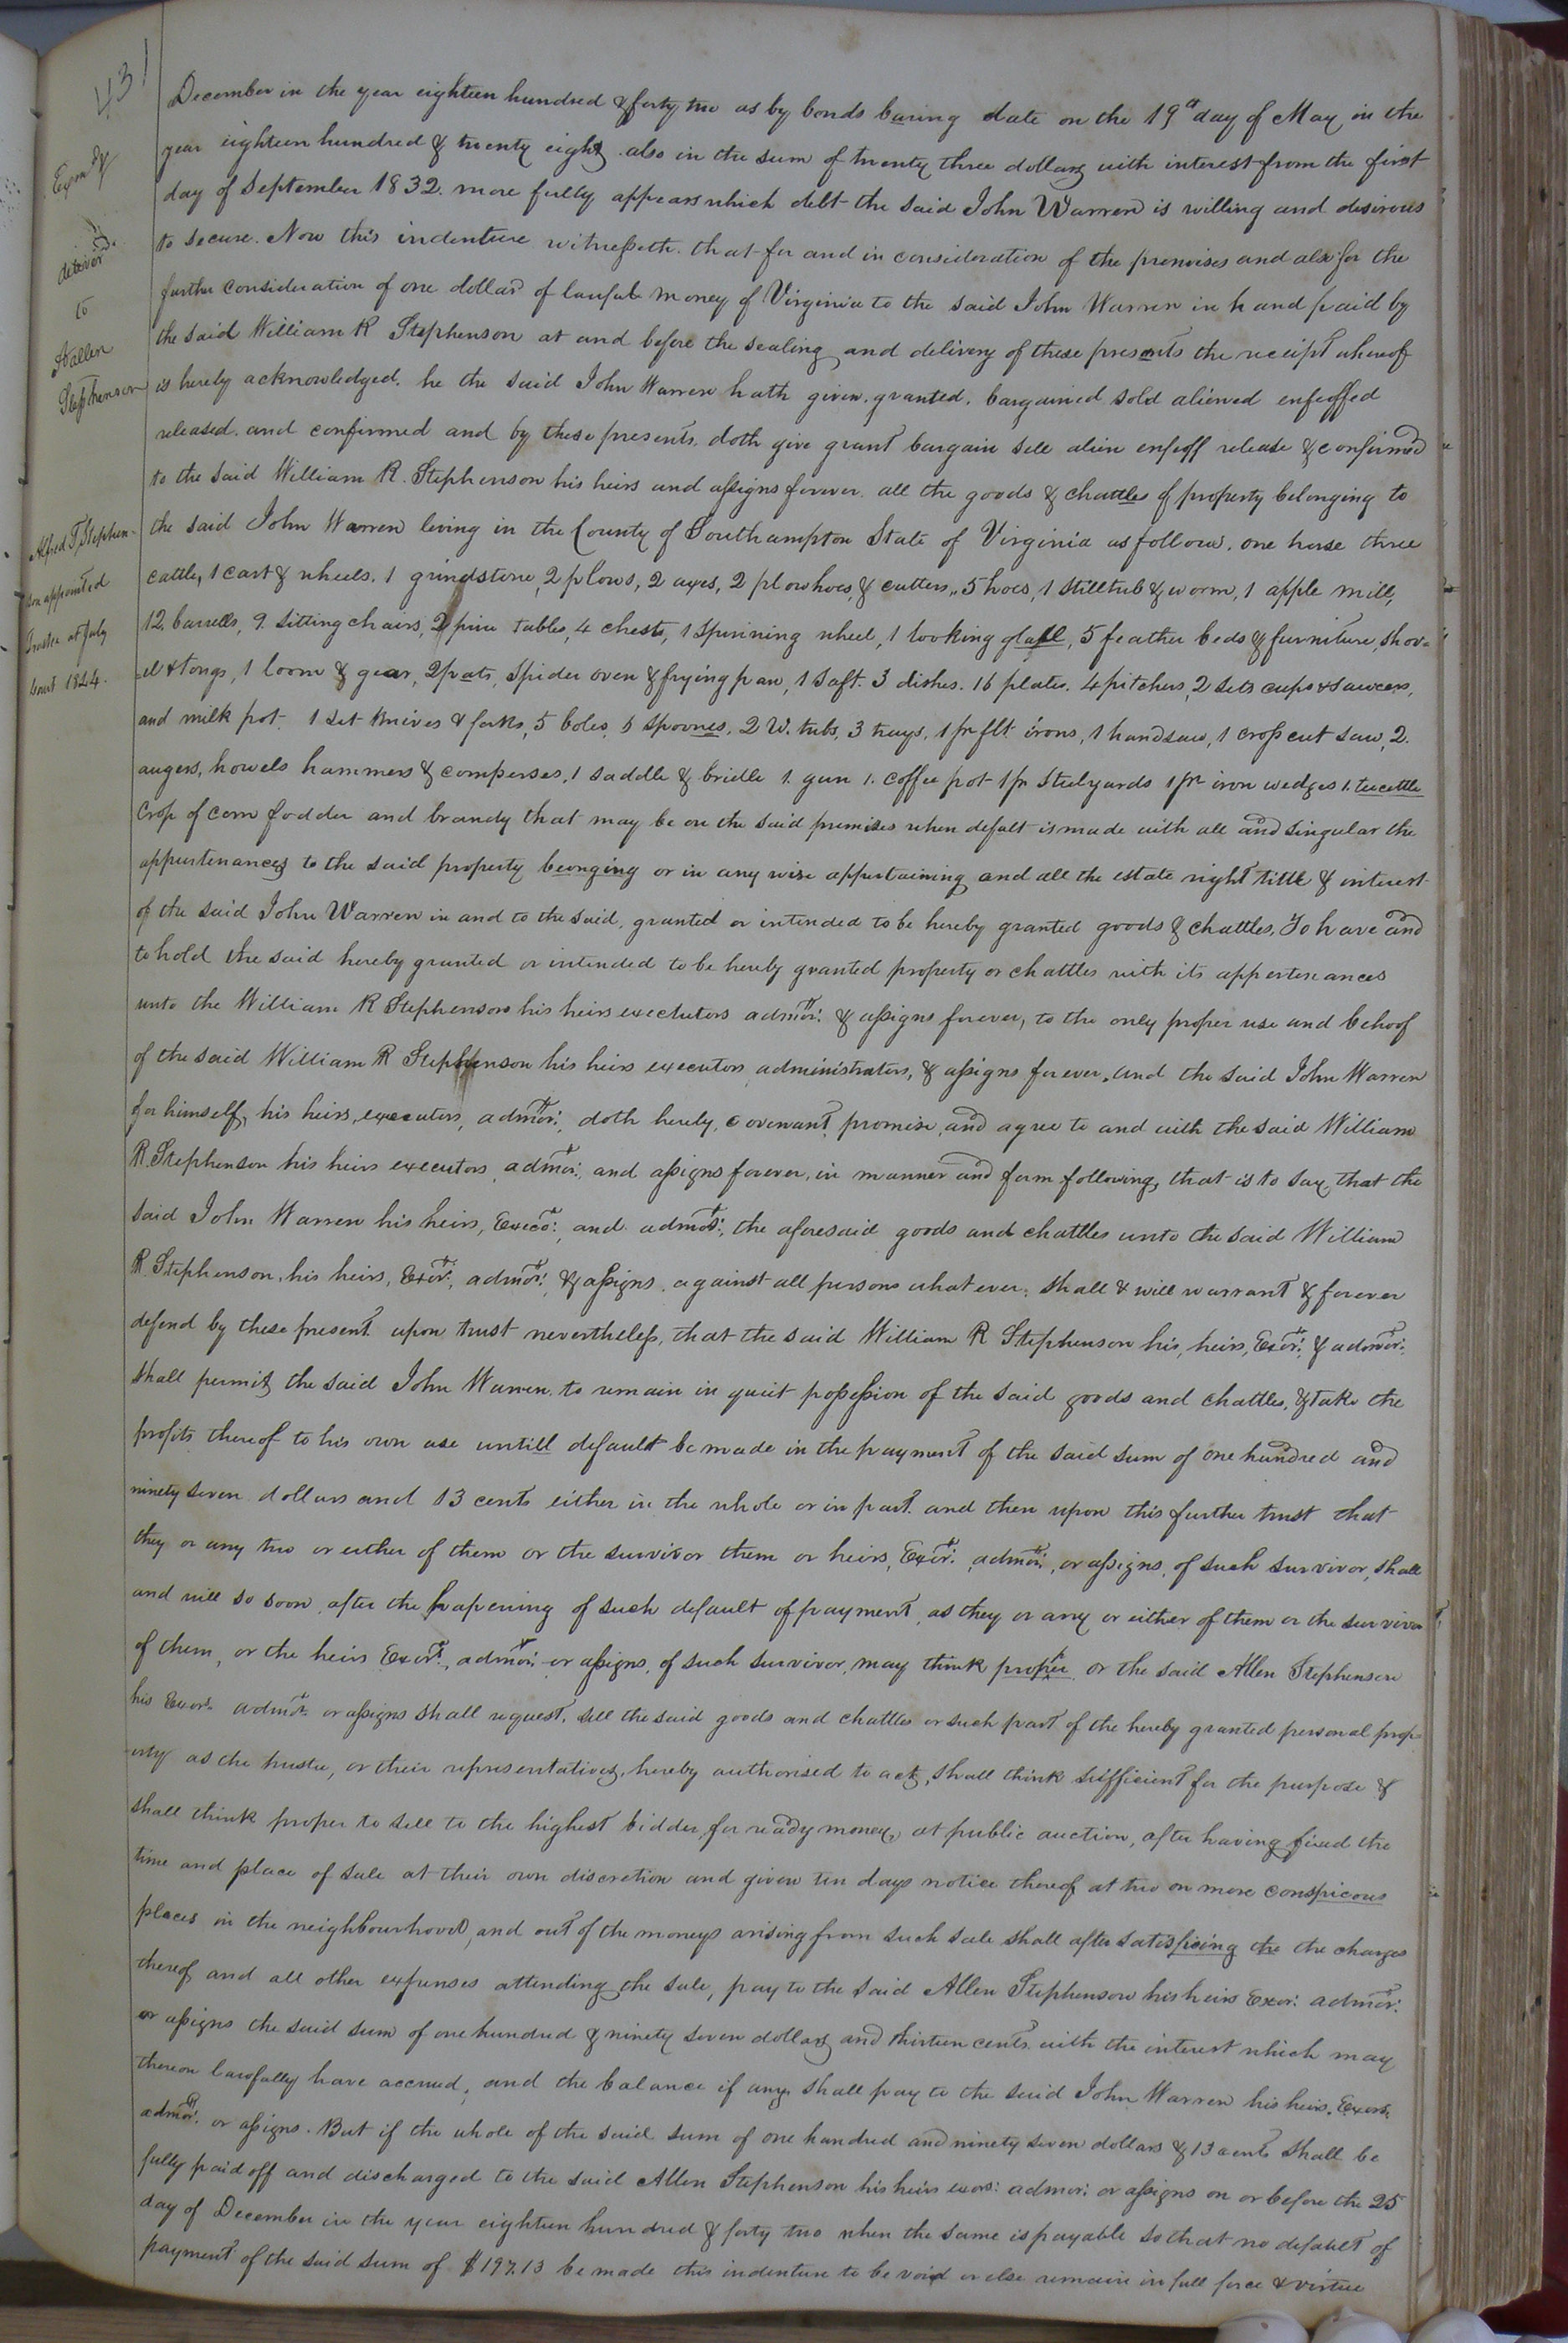 431
Exam'd &
deliver'd
to
Allen
Stephenson
Alfred T. Stephen-
son appointed
Trustee at July
Court 1844.
December in the year eighteen hundred & forty two as by bonds baring date on the 19th day of May in the
year eighteen hundred & twenty eight also in the sum of twenty three dollars with interest from the first
day of September 1832. more fully appears which debt the said John Warren is willing and desirous
to secure. Now this indenture witnesseth. that for and in consideration of the premises and also for the
further consideration of one dollar of lawful money of Virginia to the said John Warren in hand paid by
the said William R Stephenson at and before the sealing and delivery of these presents the receipt whereof
is hereby acknowledged. he the said John Warren hath given. granted. bargained sold aliened enfeoffed
released. and confirmed and by these presents. doth give grant bargain sell alien enfeoff release & confirmed
to the said William R. Stephenson his heirs and assigns forever. all the goods & chattles of property belonging to
the said John Warren living in the County of Southampton State of Virginia as follows. one horse three
cattle, 1 cart & wheels. 1 grindstone, 2 plows, 2 axes, 2 plowhoes, & cutters,, 5 hoes, 1 still tub & worm, 1 apple mill,
12. barrells, 9. sitting chairs, 2 pine tables, 4 chests, 1 spinning wheel, 1 looking glass, 5 feather beds & furniture, shov=
=el & tongs, 1 loom & gear, 2 pots, spider oven & frying pan, 1 saft. 3 dishes. 16 plates. 4 pitchers, 2 sets cups & saucers,
and milk pot. 1 set knives & forks, 5 boles, 6 spoones, 2 W. tubs, 3 trays, 1 pr flt irons, 1 handsaw, 1 cross cut saw, 2.
augers, howels hammers & comperses, 1 saddle & bridle 1. gun 1. coffee pot 1 pr Steelyards 1 pr iron wedges 1. teecettle
Crop of corn fodder and brandy that may be on the said premises when defalt is made with all and singular the
appurtenances to the said property beonging or in any wise appertaining and all the estate right title & interest
of the said John Warren in and to the said, granted or intended to be hereby granted goods & chattles, To have and
to hold the said hereby granted or intended to be hereby granted property or chattles with its appertenances
unto the William R Stephenson his heirs exectutors admors: & assigns forever, to the only proper use and behoof
of the said William R Stephenson his heirs executors administrators, & assigns forever, and the said John Warren
for himself, his heirs, executors, admors: doth hereby, covenant promise, and agree to and with the said William
R. Stephenson his heirs executors, admors. and assigns forever, in manner and form following, that is to say, that the
said John Warren his heirs, Execo: and admors:, the aforesaid goods and chattles unto the said William
R. Stephenson, his heirs, Exors:, admors:, & assigns. against all persons whatever, shall & will warrant & forever
defend by these present upon trust nevertheless, that the said William R Stephenson his, heirs, Exors: & admors:
shall permit the said John Warren. to remain in quiet possession of the said goods and chattles, & take the
profits thereof to his own use untill default be made in the payment of the said sum of one hundred and
ninety seven dollars and 13 cents either in the whole or in part. and then upon this further trust that
they or any two or either of them or the survivor them or heirs, Exors:, admors:, or assigns, of such survivor, shall
and will so soon, after the hapening of such default of payment, as they or any or either of them or the survivor
of them, or the heirs Exors., admors: or assigns, of such survivor, may think proper or the said Allen Stephenson
his Exors. admors. or assigns shall request, sell the said goods and chattles or such part of the hereby granted personal prop-
erty as the trustee, or their representatives, hereby authorised to act, shall think sifficient for the purpose &
shall think proper to sell to the highest bidder, for ready money, at public auction, after having fixed the
time and place of sale at their own discretion and given ten days notice thereof at two on more conspicous
places in the neighbourhood, and out of the moneys arising from such sale shall after satisficing the the charges
thereof and all other expenses attending the sale, pay to the said Allen Stephenson his heirs Exor: admors:
or assigns the said sum of one hundred & ninety seven dollars and thirteen cents with the interest which may
thereon lawfully have accrued, and the balance if any, shall pay to the said John Warren his heirs, Exors.
admors. or assigns. But if the whole of the said sum of one hundred and ninety seven dollars & 13 cents shall be
fully paid off and discharged to the said Allen Stephenson his heirs exors: admors: or assigns on or before the 25
day of December in the year eighteen hundred & forty two when the same is payable so that no default of
payment of the said sum of $197.13 be made this indenture to be void or else remain in full force & virtue